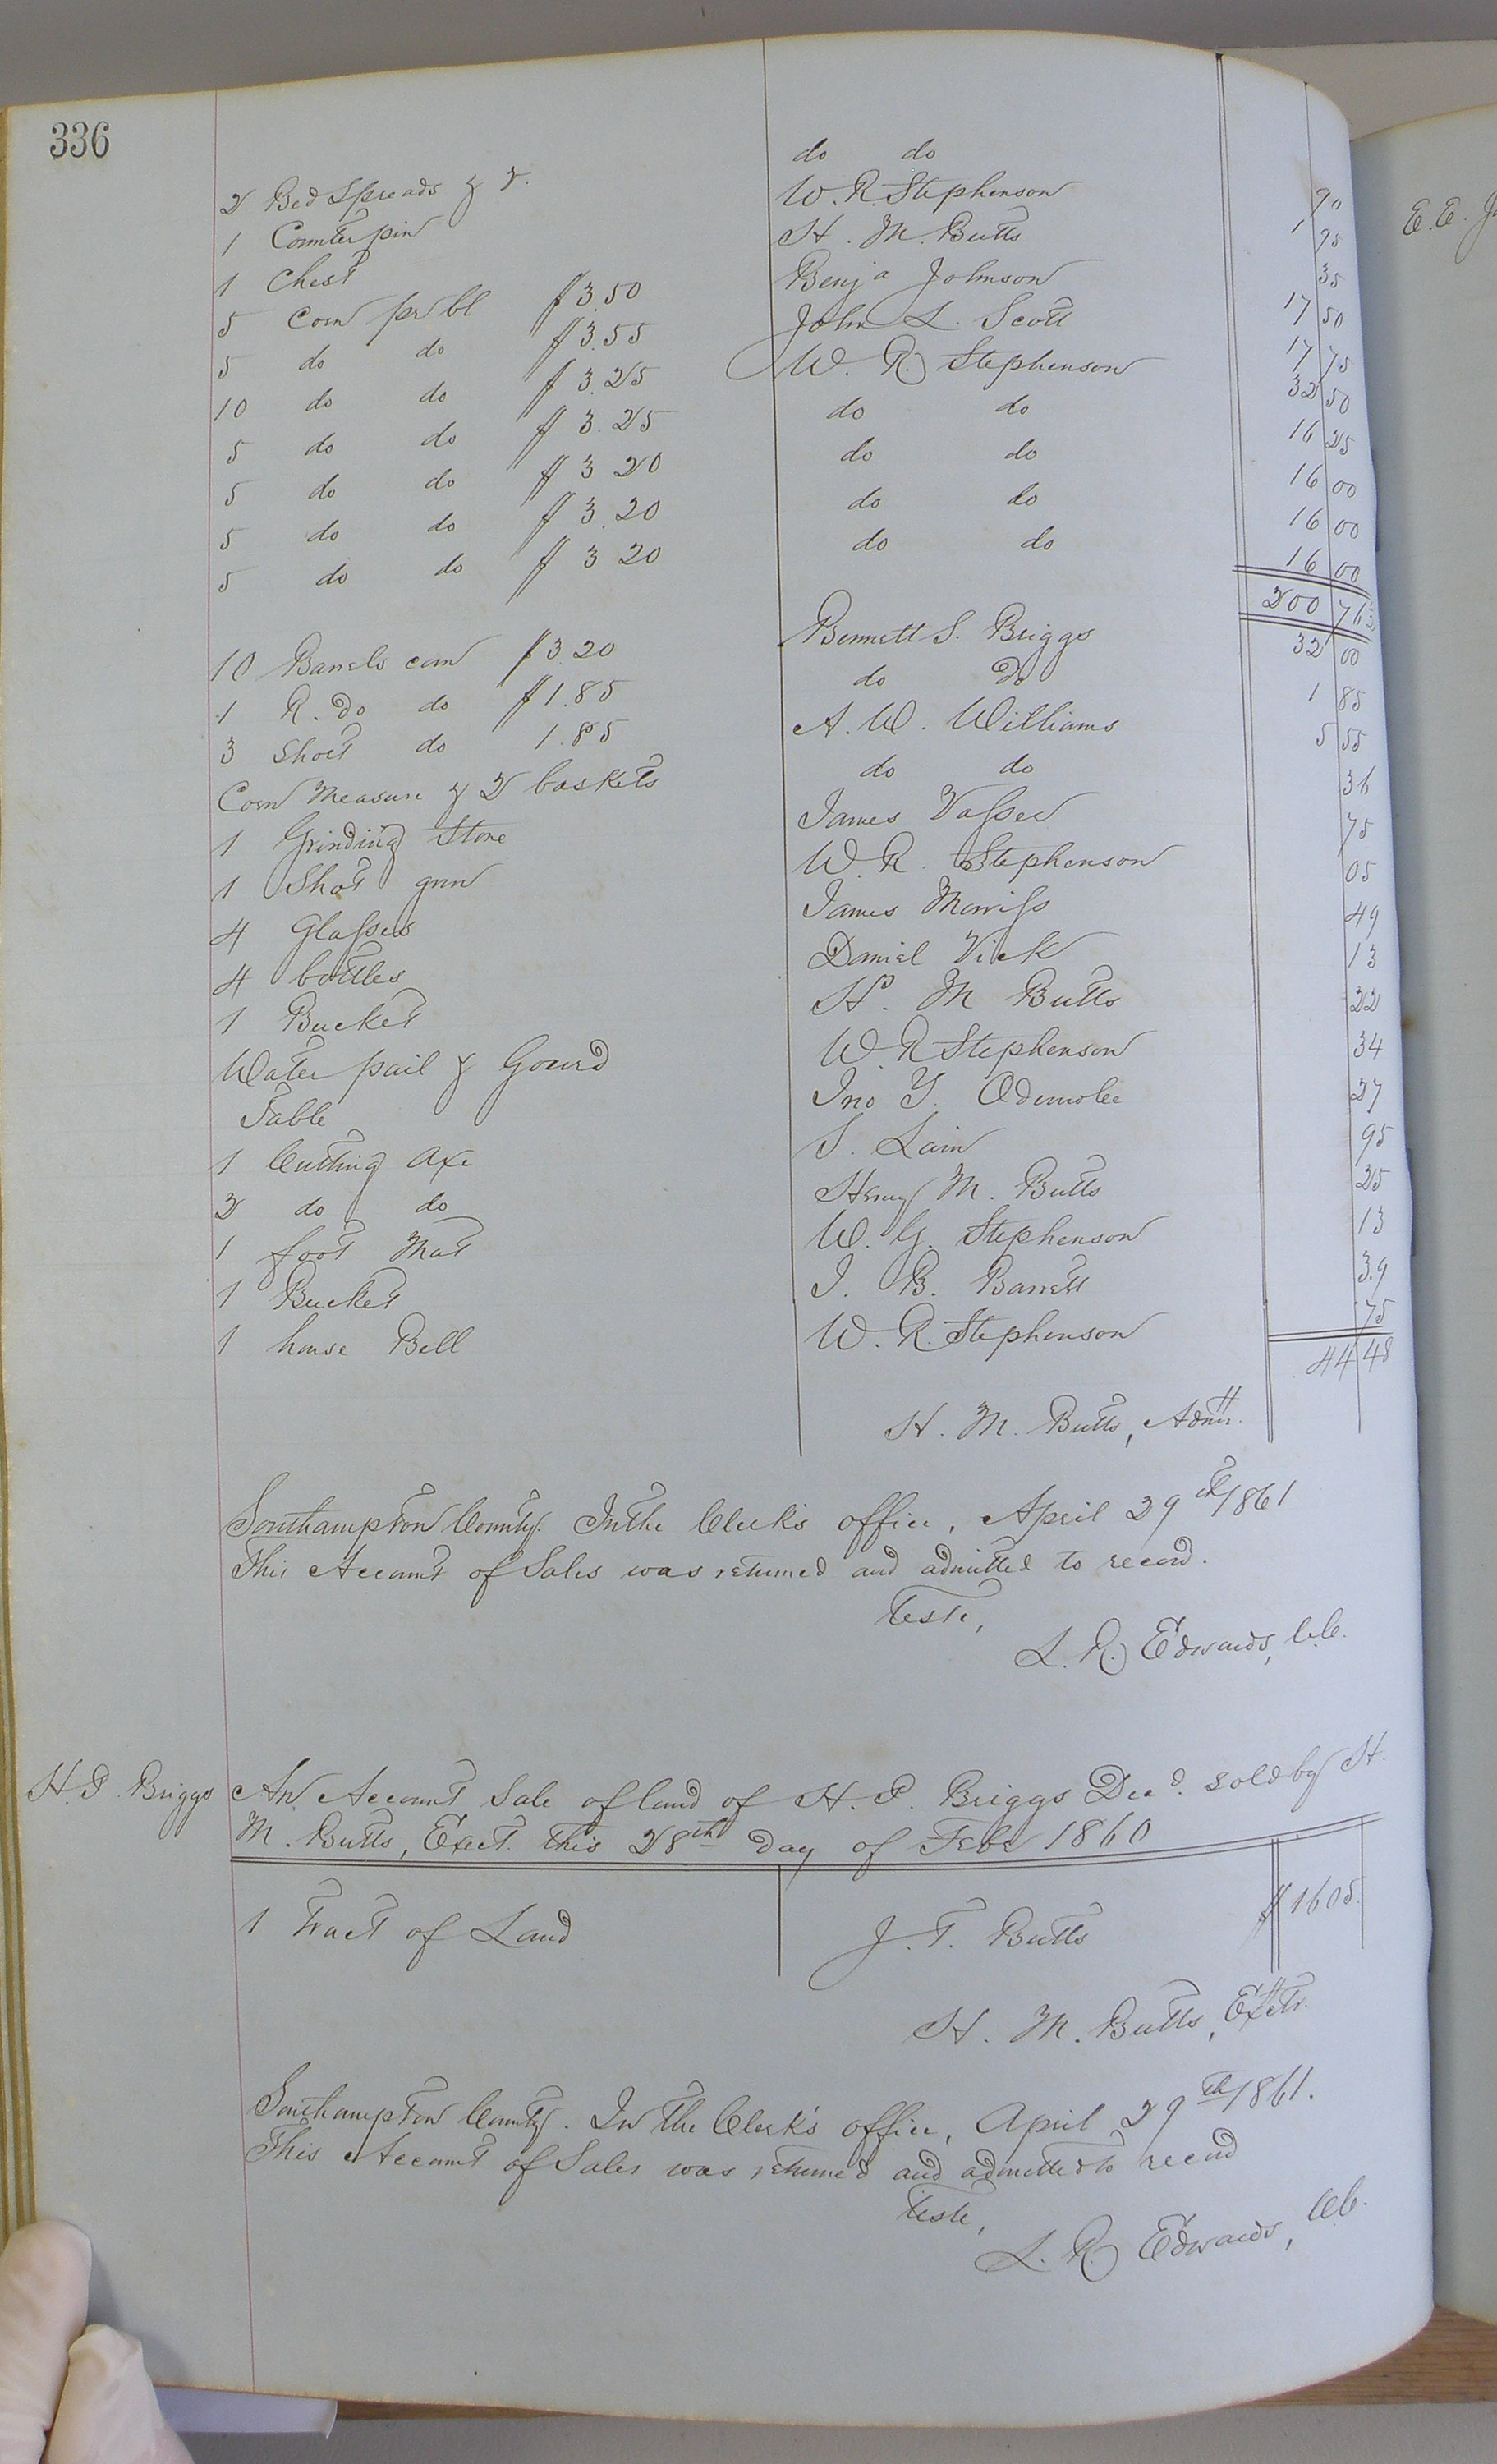 336
do do
2 Bed Spreads &
W. R. Stephenson 90
1 Counterpin H. M. Butts 1 95
1 Chest Benja Johnson 35
5 Corn pr bl $3.50 John L. Scott 17 50
5 do do $3.55 W. R. Stephenson 17 75
10 do do $3.25 do do 32 50
5 do do $3.25 do do 16 25
5 do do $3 20 do do 16 00
5 do do $3.20 do do 16 00
5 do do $3 20 16 00
200 76
10 Barrels corn $3.20 Bennett S. Briggs 32 00
1 R. do do $1.85 do do 1 85
3 Short do 1.85 A. W. Williams 5 55
Corn Measure & 2 baskets do do 36
1 Grinding Stone James Vasser 75
1 Shot gun W. R. Stephenson 05
4 Glasses James Morriss 49
4 bottles Daniel Vick 13
1 Bucket H. M Butts 22
Water pail & Gourd W. R Stephenson 34
Table Jno Y. 27
1 Cutting Axe S. Lain 95
2 do do Henry M. Butts 25
1 foot Mat W. G. Stephenson 13
1 Bucket J. B. Barrett 39
1 house Bell W. R. Stephenson 75
44 48
H. M. Butts, Admr.
Southampton County. In the Clerk's office, April 29th 1861
This Account of Sales was returned and admitted to record.
Teste,
L. R. Edwards, C.C.
H. P. Briggs An Account Sale of land of H. P. Briggs Decd. sold by H.
M. Butts, Exect. this 28th day of Feb 1860
1 Tract of Land J. T. Butts $1605.
H. M. Butts, Exctr.
Southampton County. In the Clerk's office, April 29th 1861.
This Account of Sales was returned and admitted to record
Teste,
L. R. Edwards, C.C.
E. E.